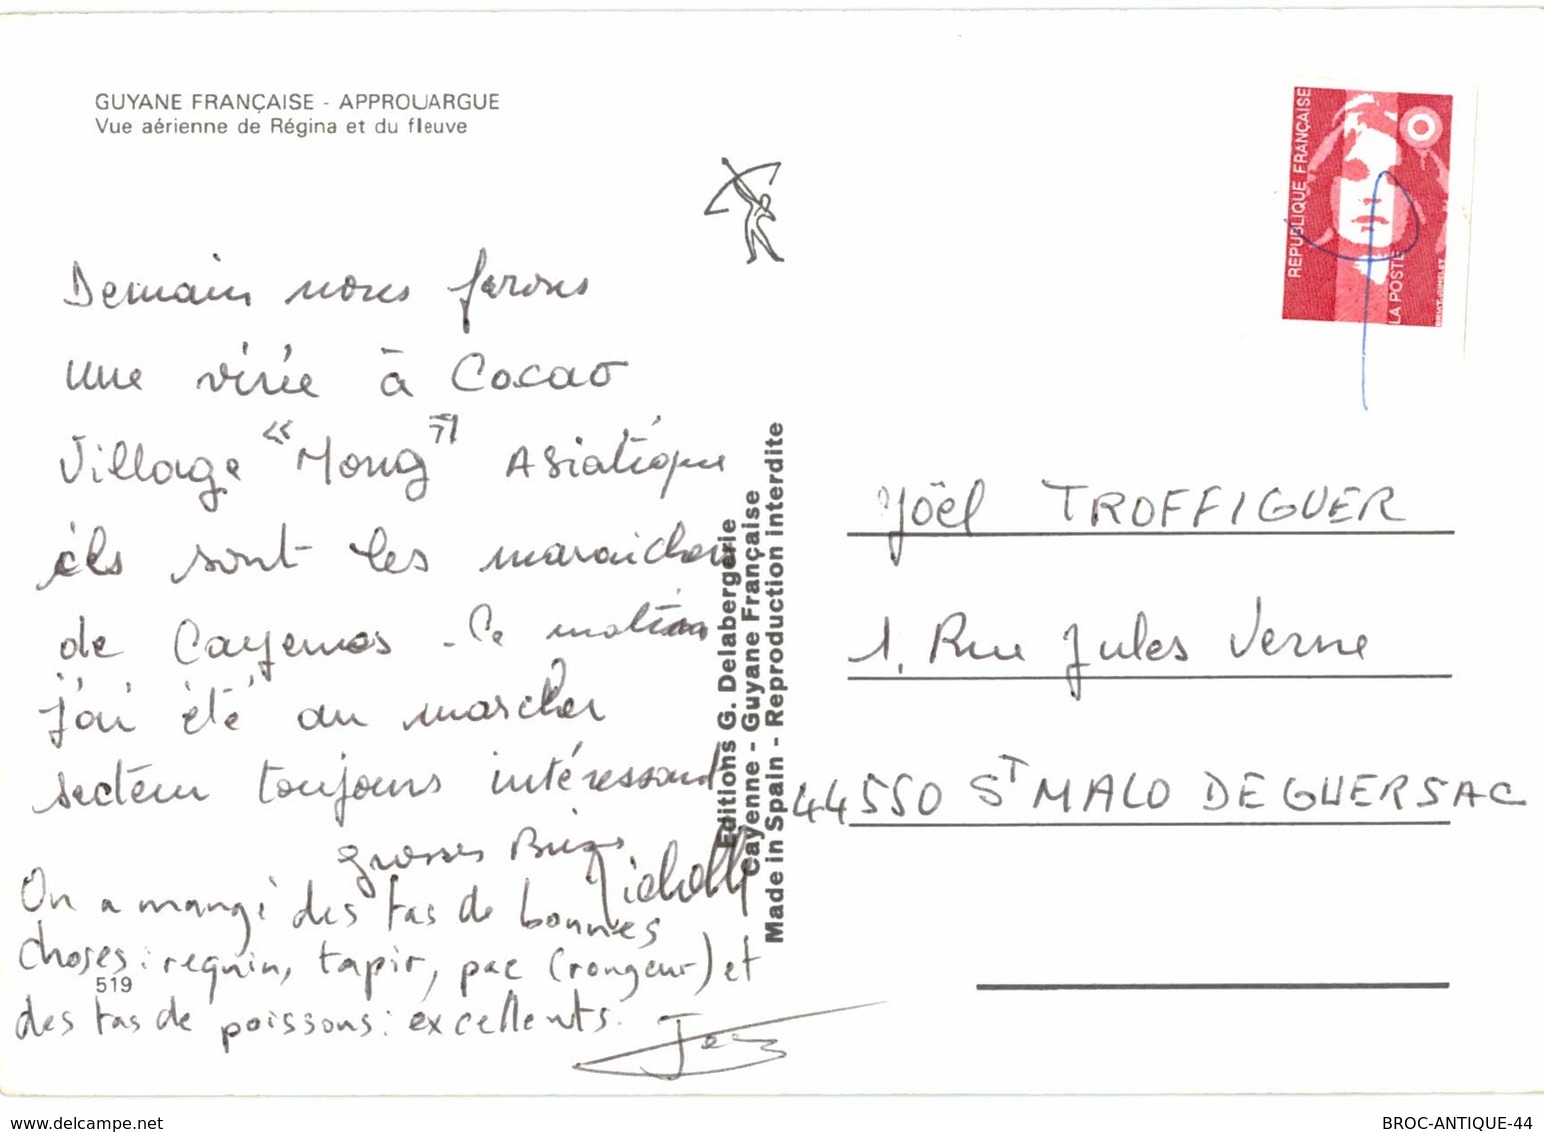 GUYANE FRANÇAISE - APPROUARGUE
Vue aérienne de Régina et du fleuve
RÉPUBLIQUE FRANÇAISE
LA POSTE
Demain nous ferons
une virée à Cocao
Village "Mong" Asiatique
ils sont les maraicher
de Cayennes - Ce matin
j'ai été au marcher
secteur toujours intéressant
grosses Bises
Michelle
On a mangé des tas de bonnes
choses : requin, tapir, pac (rongeur) et
519
des tas de poissons : excellents.
Editions G. Delabergerie
Cayenne - Guyane Française
Made in Spain - Reproduction interdite
Yöel TROFFIGUER
1, Rue Jules Verne
44550 ST MALO DE GUERSAC
www.delcampe.net
BROC-ANTIQUE-44